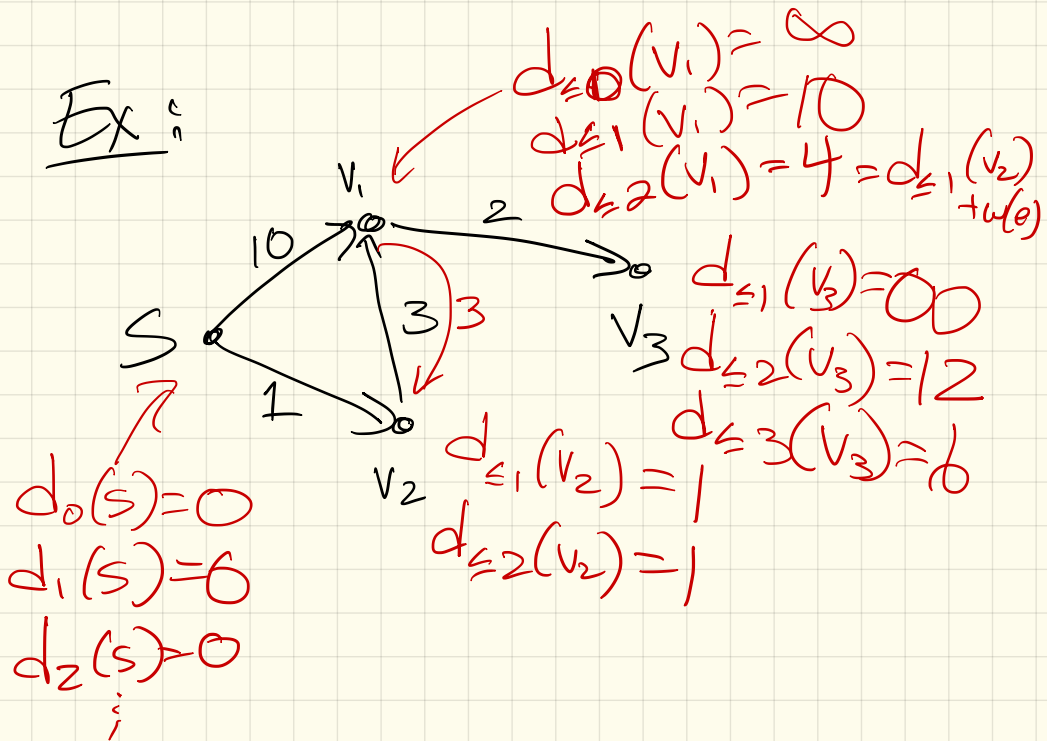 Ex:
d≤0(v₁)=∞
d≤1(v₁)=10
d≤2(v₁)=4=d≤1(v₂)
+w(e)
v₁
10
2
3
3
S
1
v₃
v₂
d≤1(v₃)=∞
d≤2(v₃)=12
d≤3(v₃)=6
d≤1(v₂)=1
d≤2(v₂)=1
d₀(s)=0
d₁(s)=0
d₂(s)=0
⋮